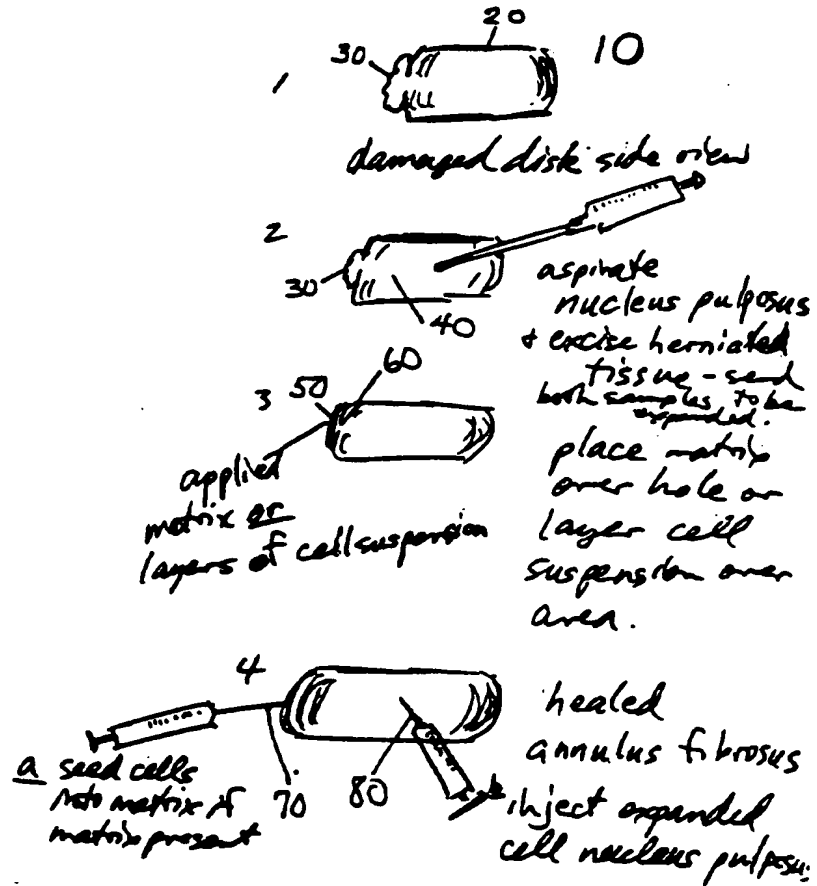 20
30
10
1
damaged disk side view
2
30
40
aspirate
nucleus pulposus
+ excise herniated
tissue - send
both samples to be
expanded.
3
50
60
applied
matrix or
layers of cell suspension
place matrix
over hole or
layer cell
suspension over
area.
4
a seed cells
into matrix if
matrix present
70
80
healed
annulus fibrosus
inject expanded
cell nucleus pulposus